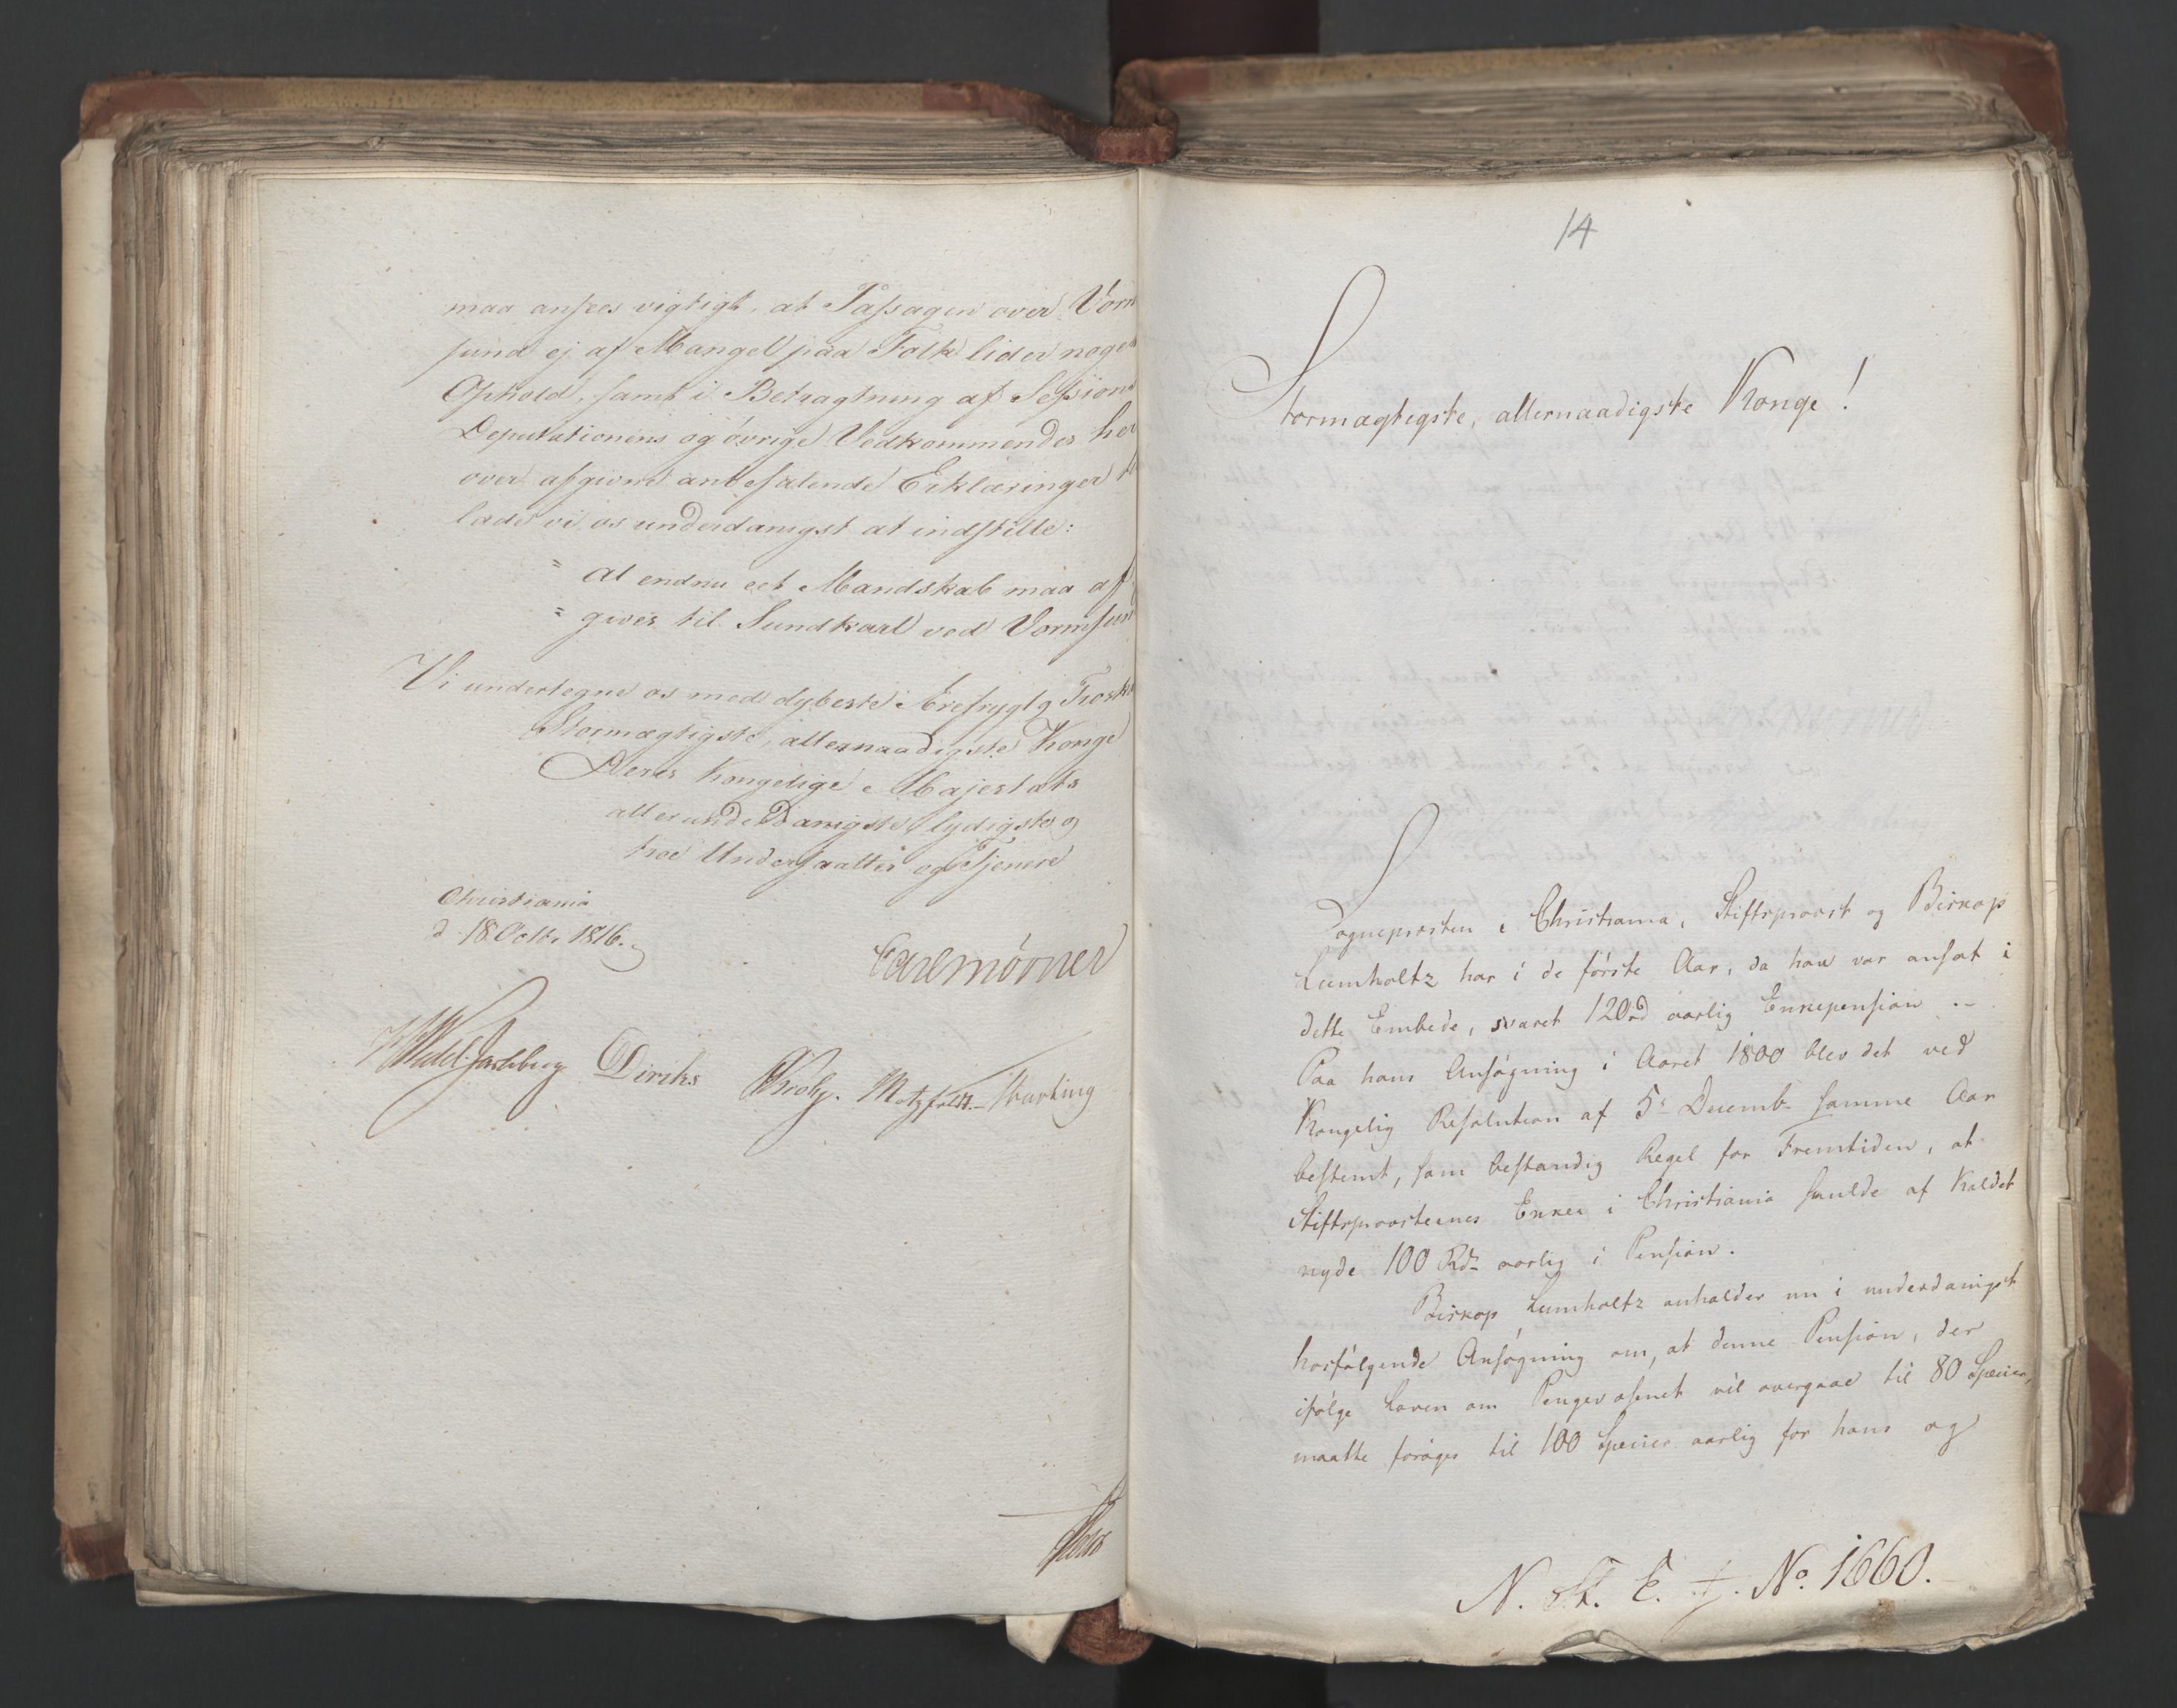 maa ansees vigtigt, at Passagen over Vorm
sund ej af Mangel paa Folk lider noget
Ophold, samt i Betragtning af Sessions
Deputationens og övrige Vedkommendes her
over afgivne anbefalende Erklæringer
lade vi os underdanigst at indstille:
" At endnu eet Mandskab maa af
" gives til Sundkarl ved Vormsund
Vi undertegne os med dybeste Ærefrygt og Troskab
Stormægtigste, allernaadigste Konge
Deres Kongelige Majestæts
allerunderdanigste, lydigste og
troe Undersaatter og Tjenere
Christiania
d 18 Octbr 1816.
Carl Mörner
HWedel Jarlsberg Diriks Krohg. Motzfeldt. Hærting
14
Stormægtigste, allernaadigste Konge!
Sognepræsten i Christiania, Stiftsprovst og Biskop
Lumholtz har i de förste Aar, da han var ansat i
dette Embede, svaret 120 rd aarlig Enkepension.
Paa hans Ansögning i Aaret 1800 blev det ved
Kongelig Resolution af 5' Decemb. samme Aar
bestemt, som bestandig Regel for Fremtiden, at
Stiftsprovsternes Enker i Christiania skulde af Kaldet
nyde 100 Rd. aarlig i Pension.
Biskop Lumholtz anholder nu i underdanigst
hosfölgende Ansögning om, at denne Pension, der
ifölge Loven om Pengevæsenet vil overgaae til 80 Species,
maatte foröges til 100 Species aarlig for hans og
N. St. E. . No. 1660.